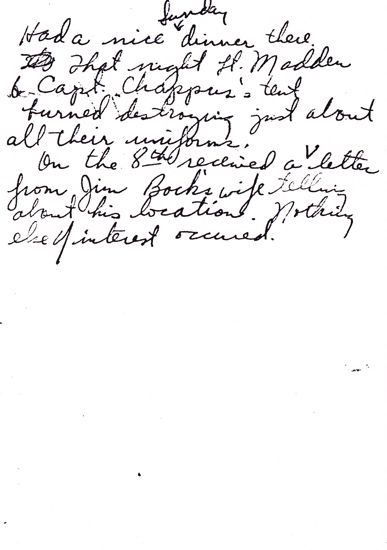 Sunday
Had a nice dinner there
That night Lt. Madden
& Capt. Chappus's tent
burned destroying just about
all their uniforms.
On the 8th received a letter
from Jim Bock's wife telling
about his location. Nothing
else of interest occured.